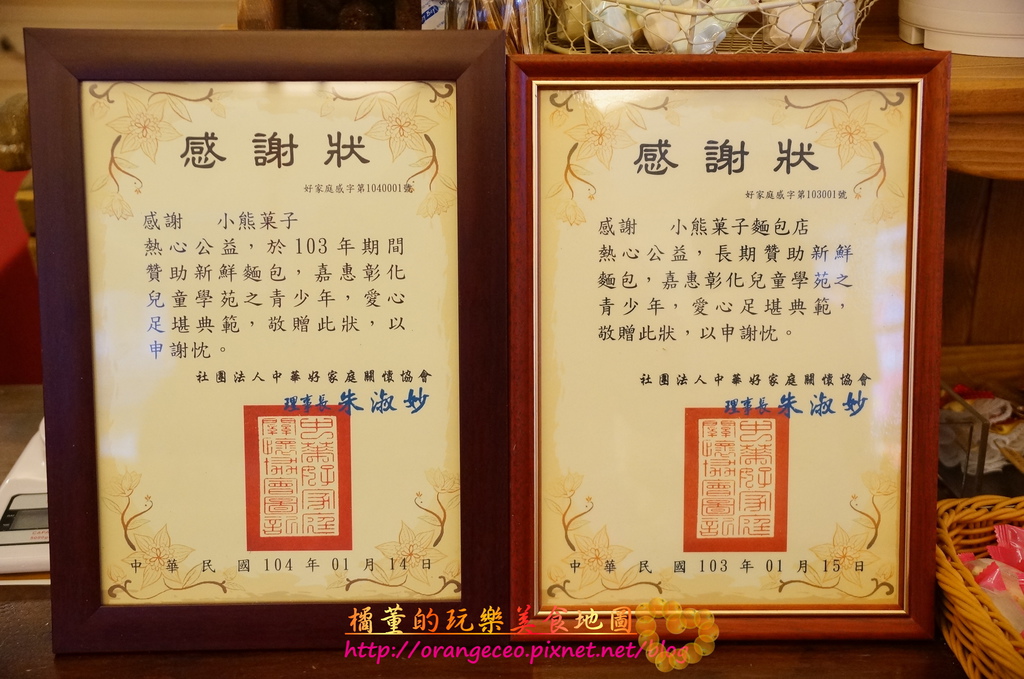 感謝狀
好家庭感字第1040001號
感謝　小熊菓子
熱心公益，於103年期間
贊助新鮮麵包，嘉惠彰化
兒童學苑之青少年，愛心
足堪典範，敬贈此狀，以
申謝忱。
社團法人中華好家庭關懷協會
理事長 朱淑妙
中華好家庭
關懷協會圖記
中華民國104年01月14日
感謝狀
好家庭感字第103001號
感謝　小熊菓子麵包店
熱心公益，長期贊助新鮮
麵包，嘉惠彰化兒童學苑之
青少年，愛心足堪典範，
敬贈此狀，以申謝忱。
社團法人中華好家庭關懷協會
理事長 朱淑妙
中華好家庭
關懷協會圖記
中華民國103年01月15日
橘董的玩樂美食地圖
http://orangeceo.pixnet.net/blog